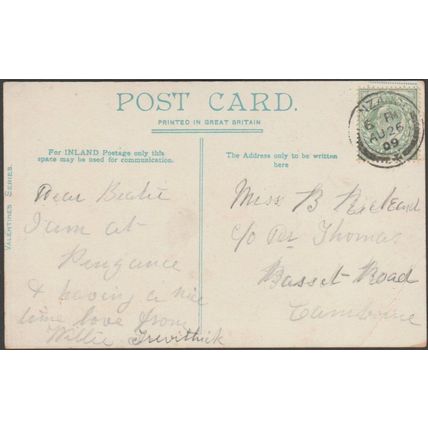 POST CARD.
PRINTED IN GREAT BRITAIN
For INLAND Postage only this
space may be used for communication.
The Address only to be written
here
VALENTINES SERIES.
Dear Beatie
I am at
Penzance
& having a nice
time love from
Willie Trevithick
Miss B
c/o Mr Thomas
Basset Road
Camborne
NZANCE
6 PM
AU 26
09